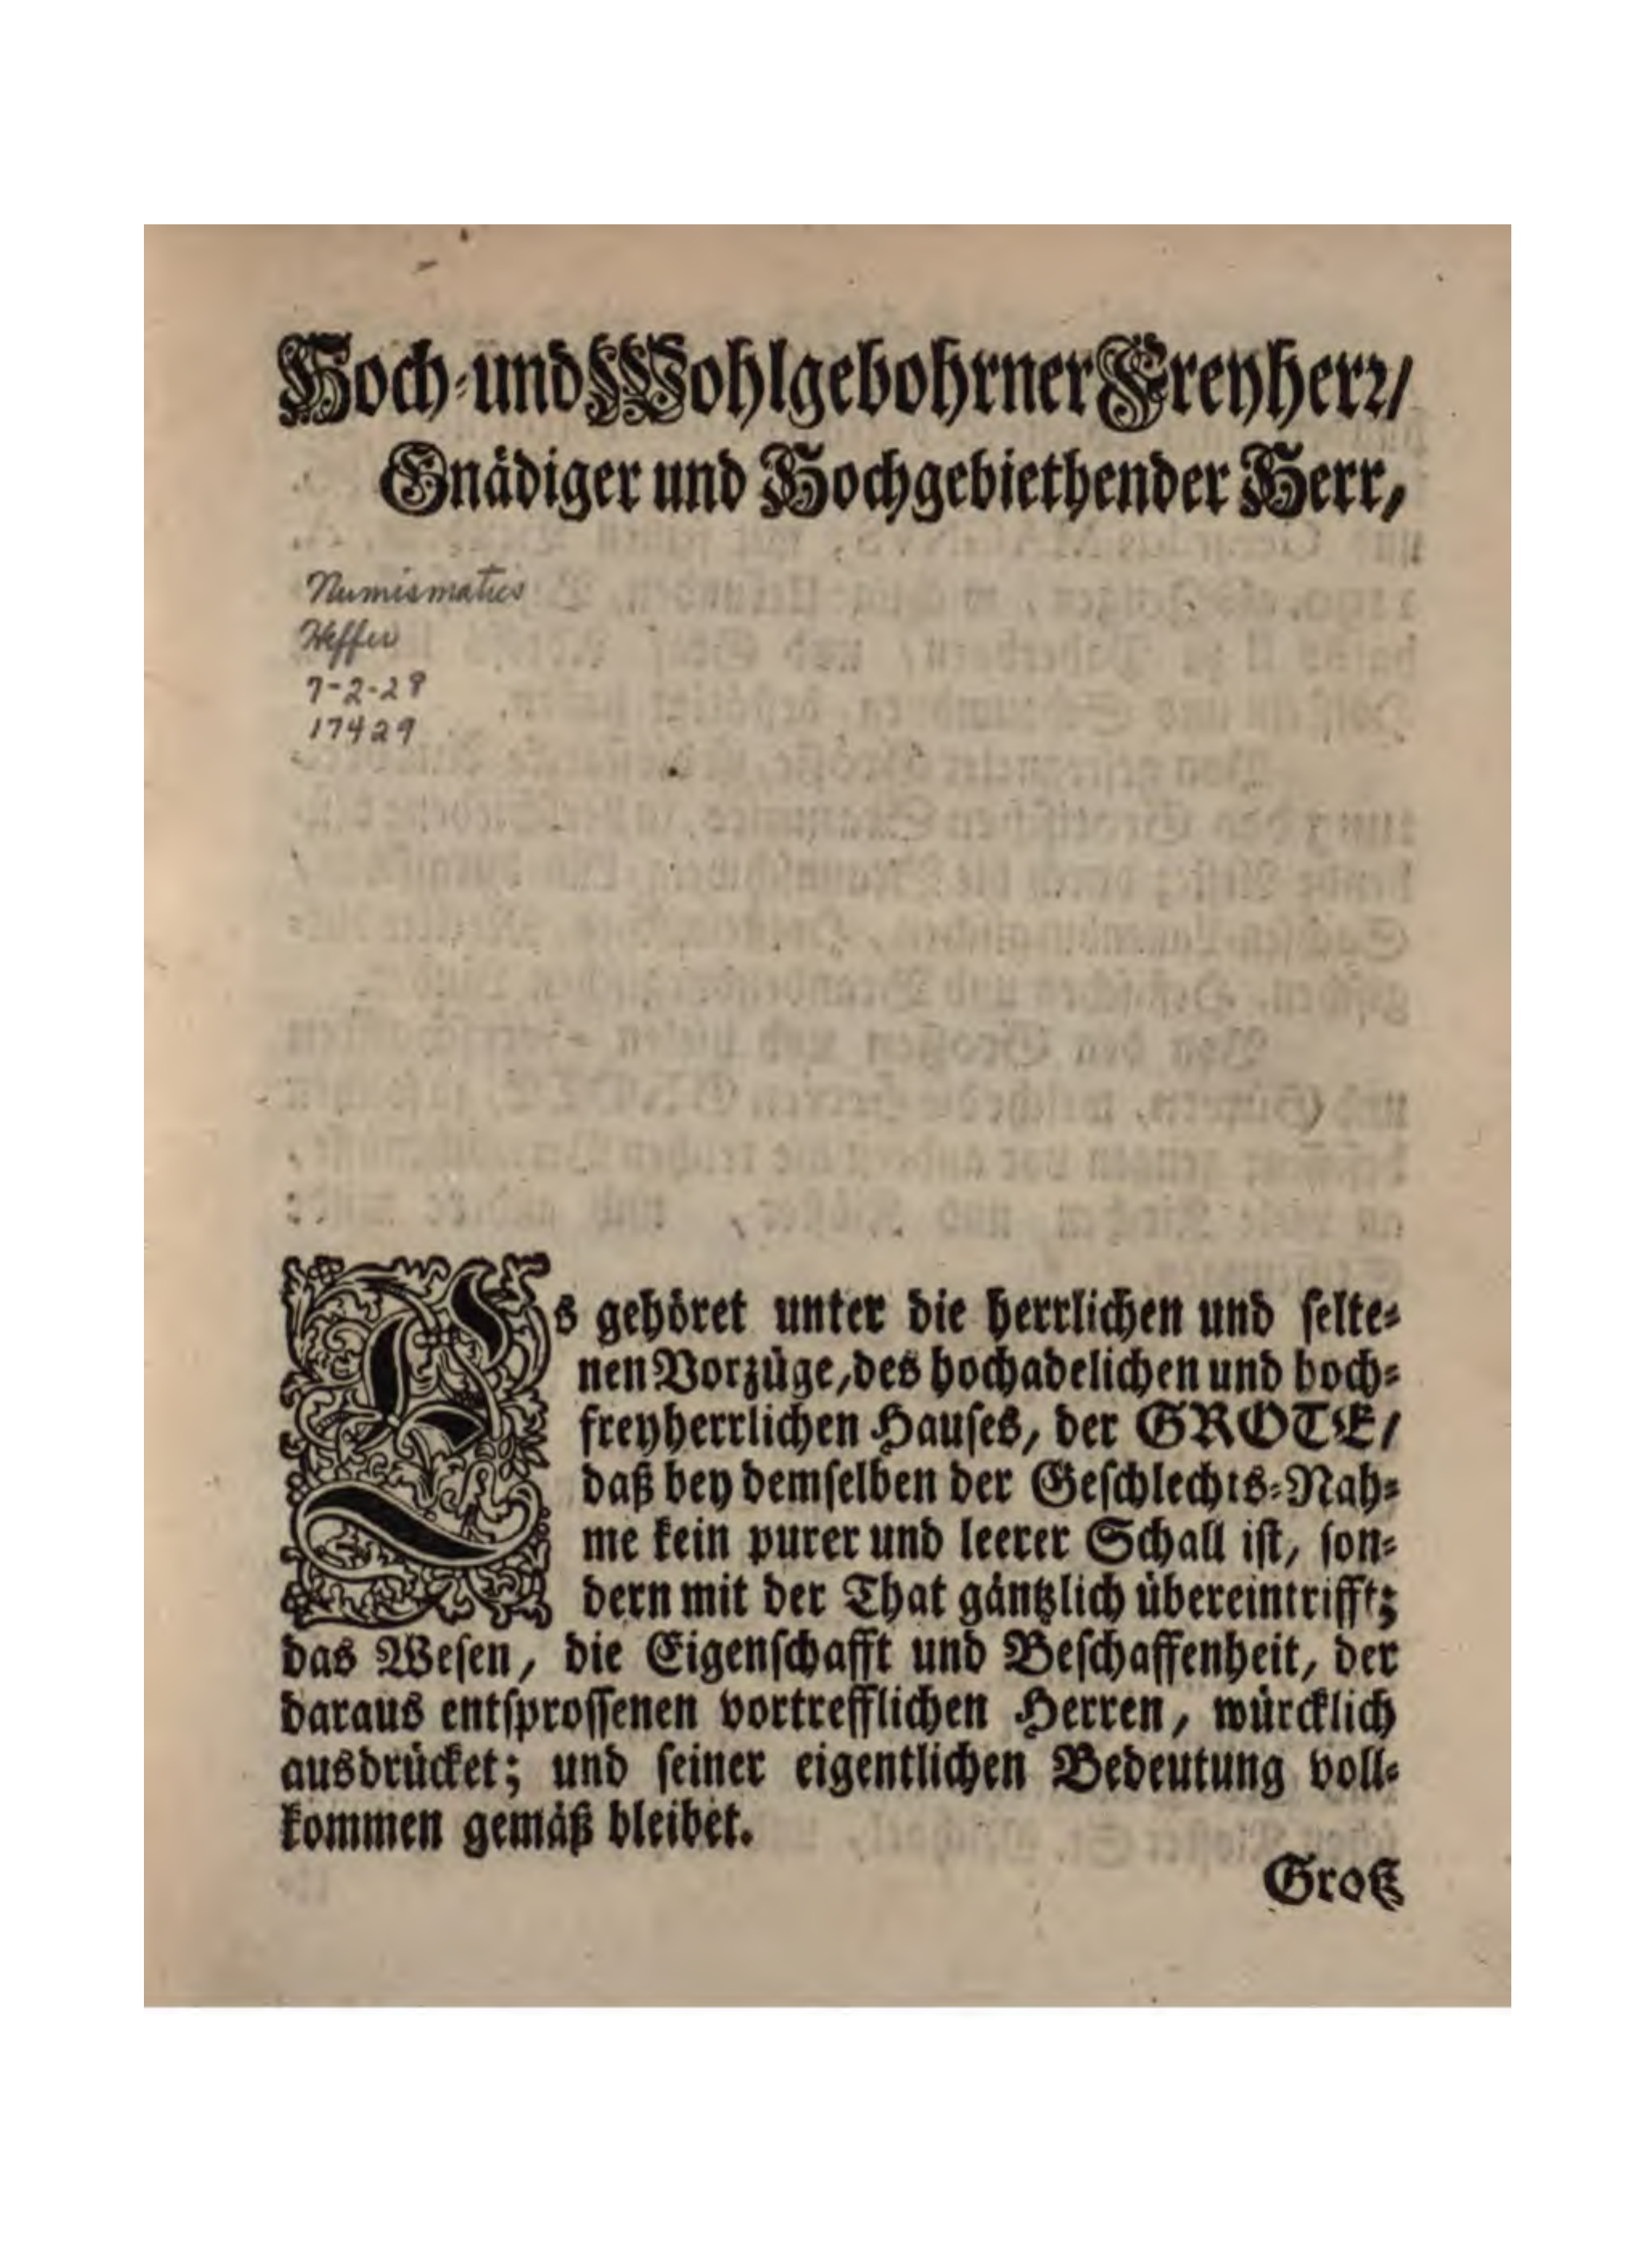 Hoch-und Wohlgebohrner Freyherr/
Gnädiger und Hochgebiethender Herr,
Numismatics
Heffer
7-2-28
17429
Es gehöret unter die herrlichen und selte-
nen Vorzüge, des hochadelichen und hoch-
freyherrlichen Hauses, der GROTE/
daß bey demselben der Geschlechts-Nah-
me kein purer und leerer Schall ist, son-
dern mit der That gäntzlich übereintrifft;
das Wesen, die Eigenschafft und Beschaffenheit, der
daraus entsprossenen vortrefflichen Herren, würcklich
ausdrücket; und seiner eigentlichen Bedeutung voll-
kommen gemäß bleibet.
Groß